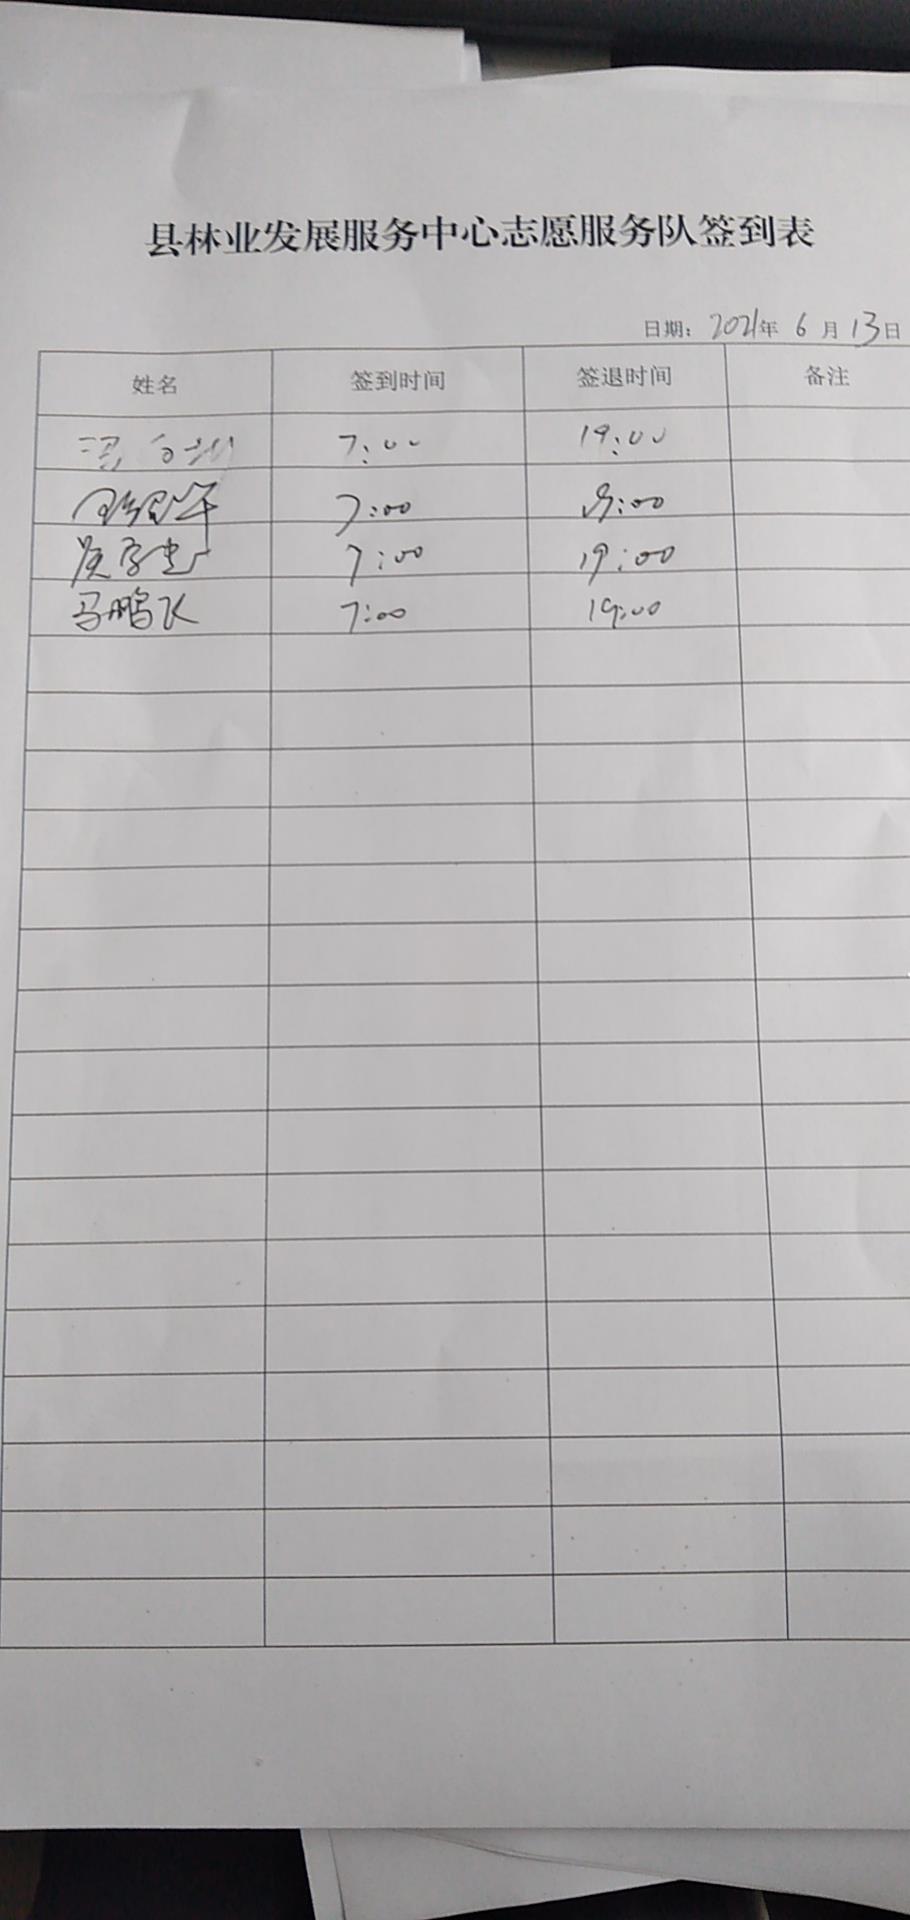 县林业发展服务中心志愿服务队签到表
日期：2021年 6 月 13日
姓名 签到时间 签退时间 备注
7:00 19:00
7:00 19:00
7:00 19:00
马鹏飞 7:00 19:00